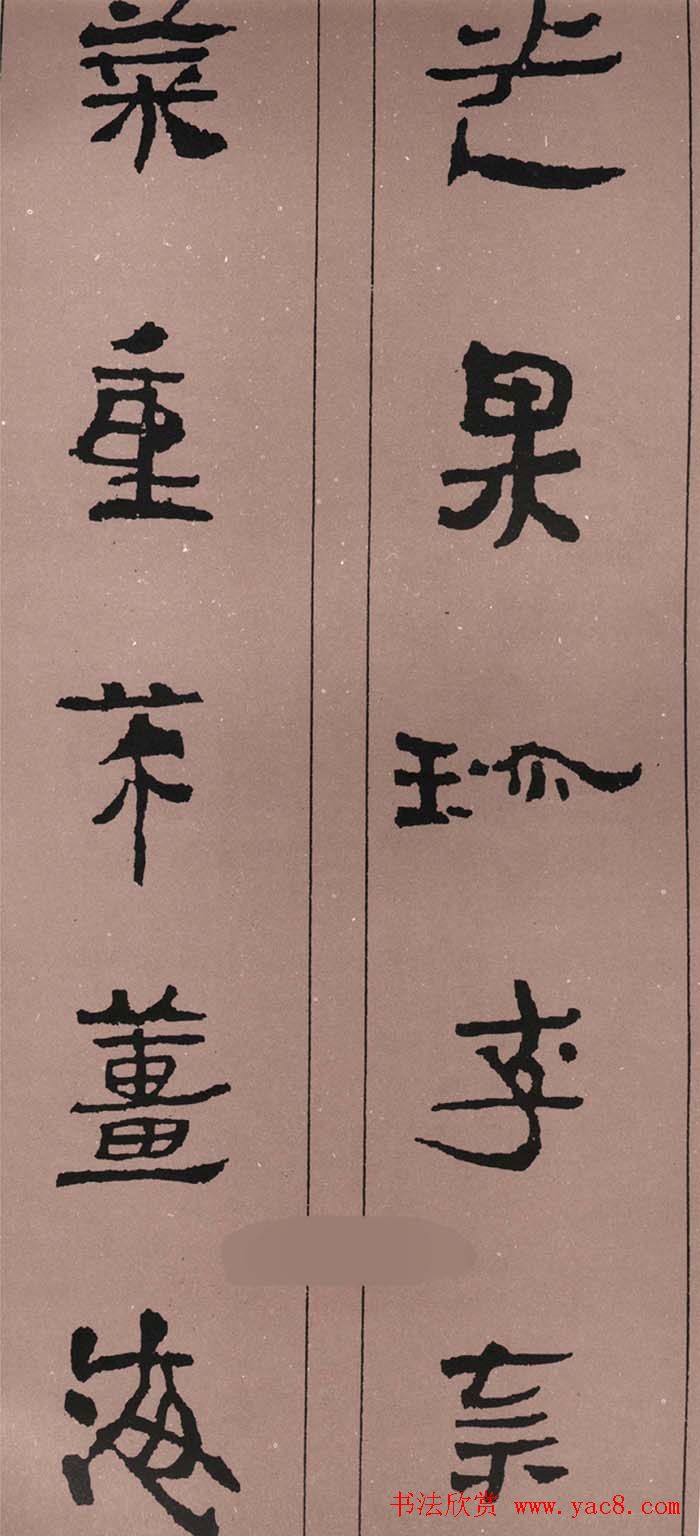 光果珍李柰
菜重芥薑海
书法欣赏 www.yac8.com